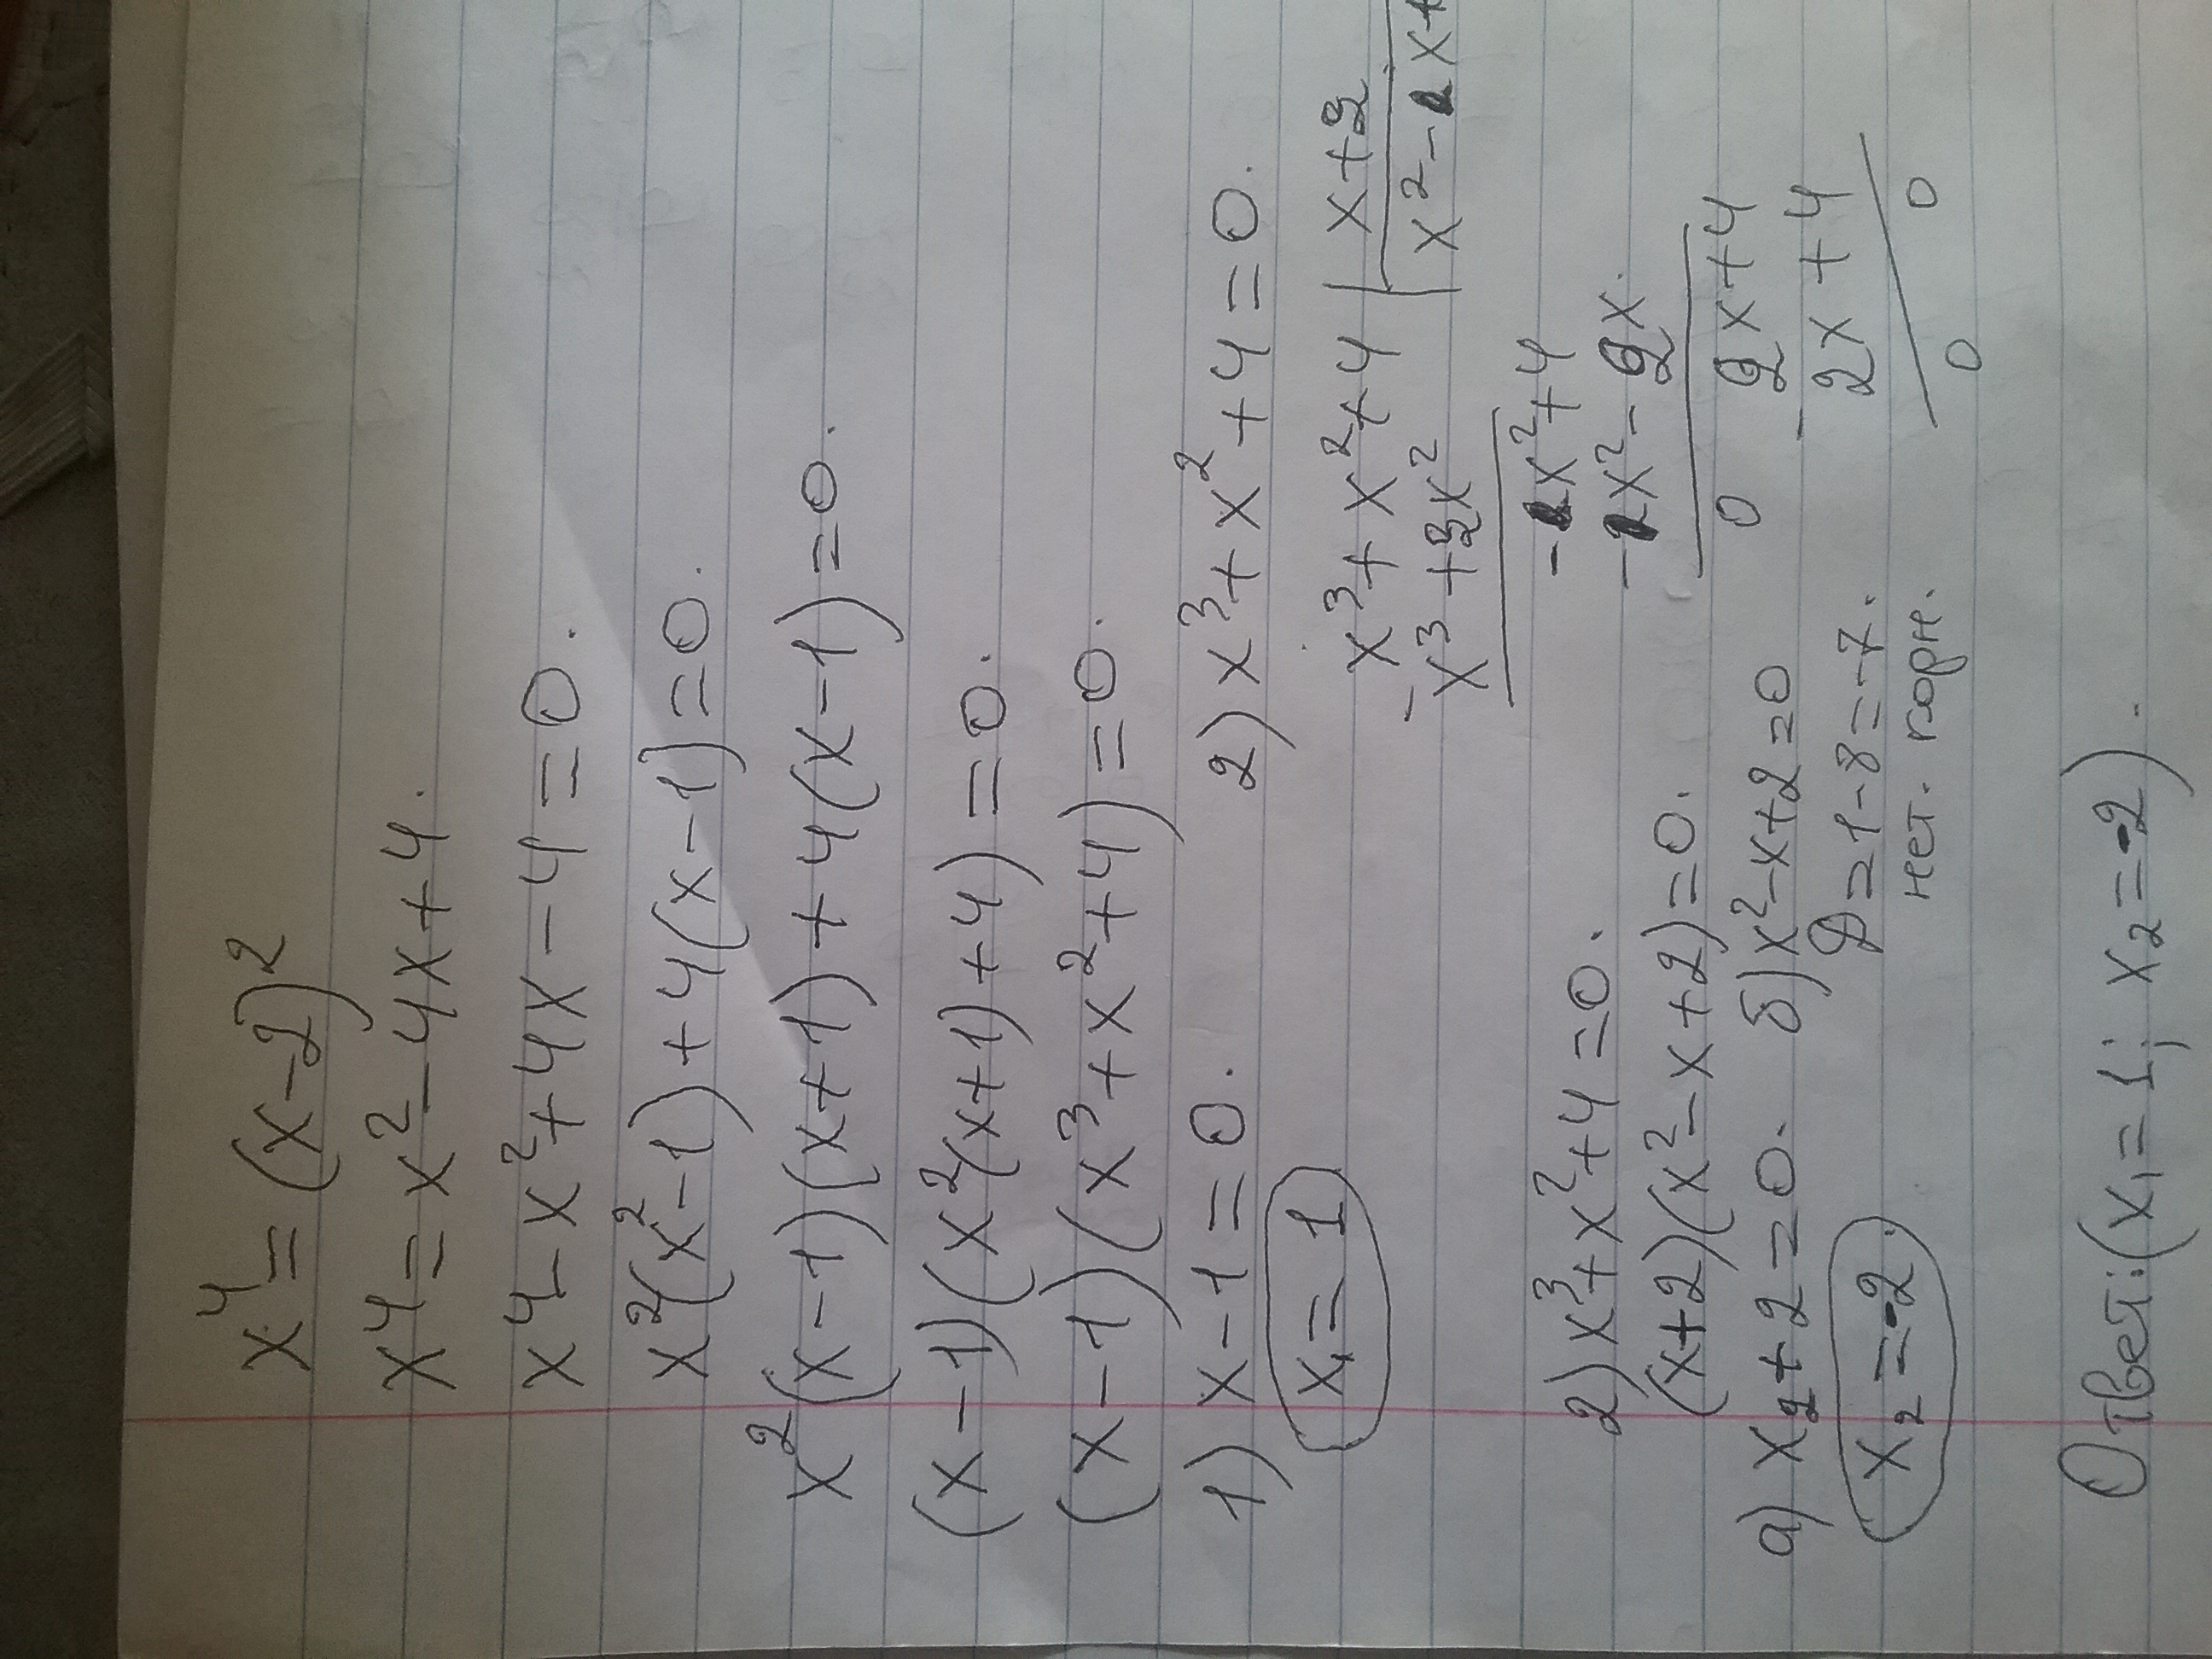 x⁴ = (x-2)²
x⁴ = x² - 4x + 4.
x⁴ - x² + 4x - 4 = 0.
x²(x²-1) + 4(x-1) = 0.
x²(x-1)(x+1) + 4(x-1) = 0.
(x-1)(x²(x+1)+4) = 0.
(x-1)(x³+x²+4) = 0.
1) x-1 = 0.
x₁ = 1
2) x³+x²+4 = 0.
x³+x²+4 | x+2
- x³+2x² | x²-1x+
-1x²+4
-1x²-2x.
0 2x+4
- 2x+4
0 0
2) x³+x²+4 = 0.
(x+2)(x²-x+2) = 0.
а) x₂+2 = 0.
x₂ = -2.
б) x²-x+2=0
D = 1-8 = -7.
нет.
Ответ: (x₁ = 1; x₂ = -2).